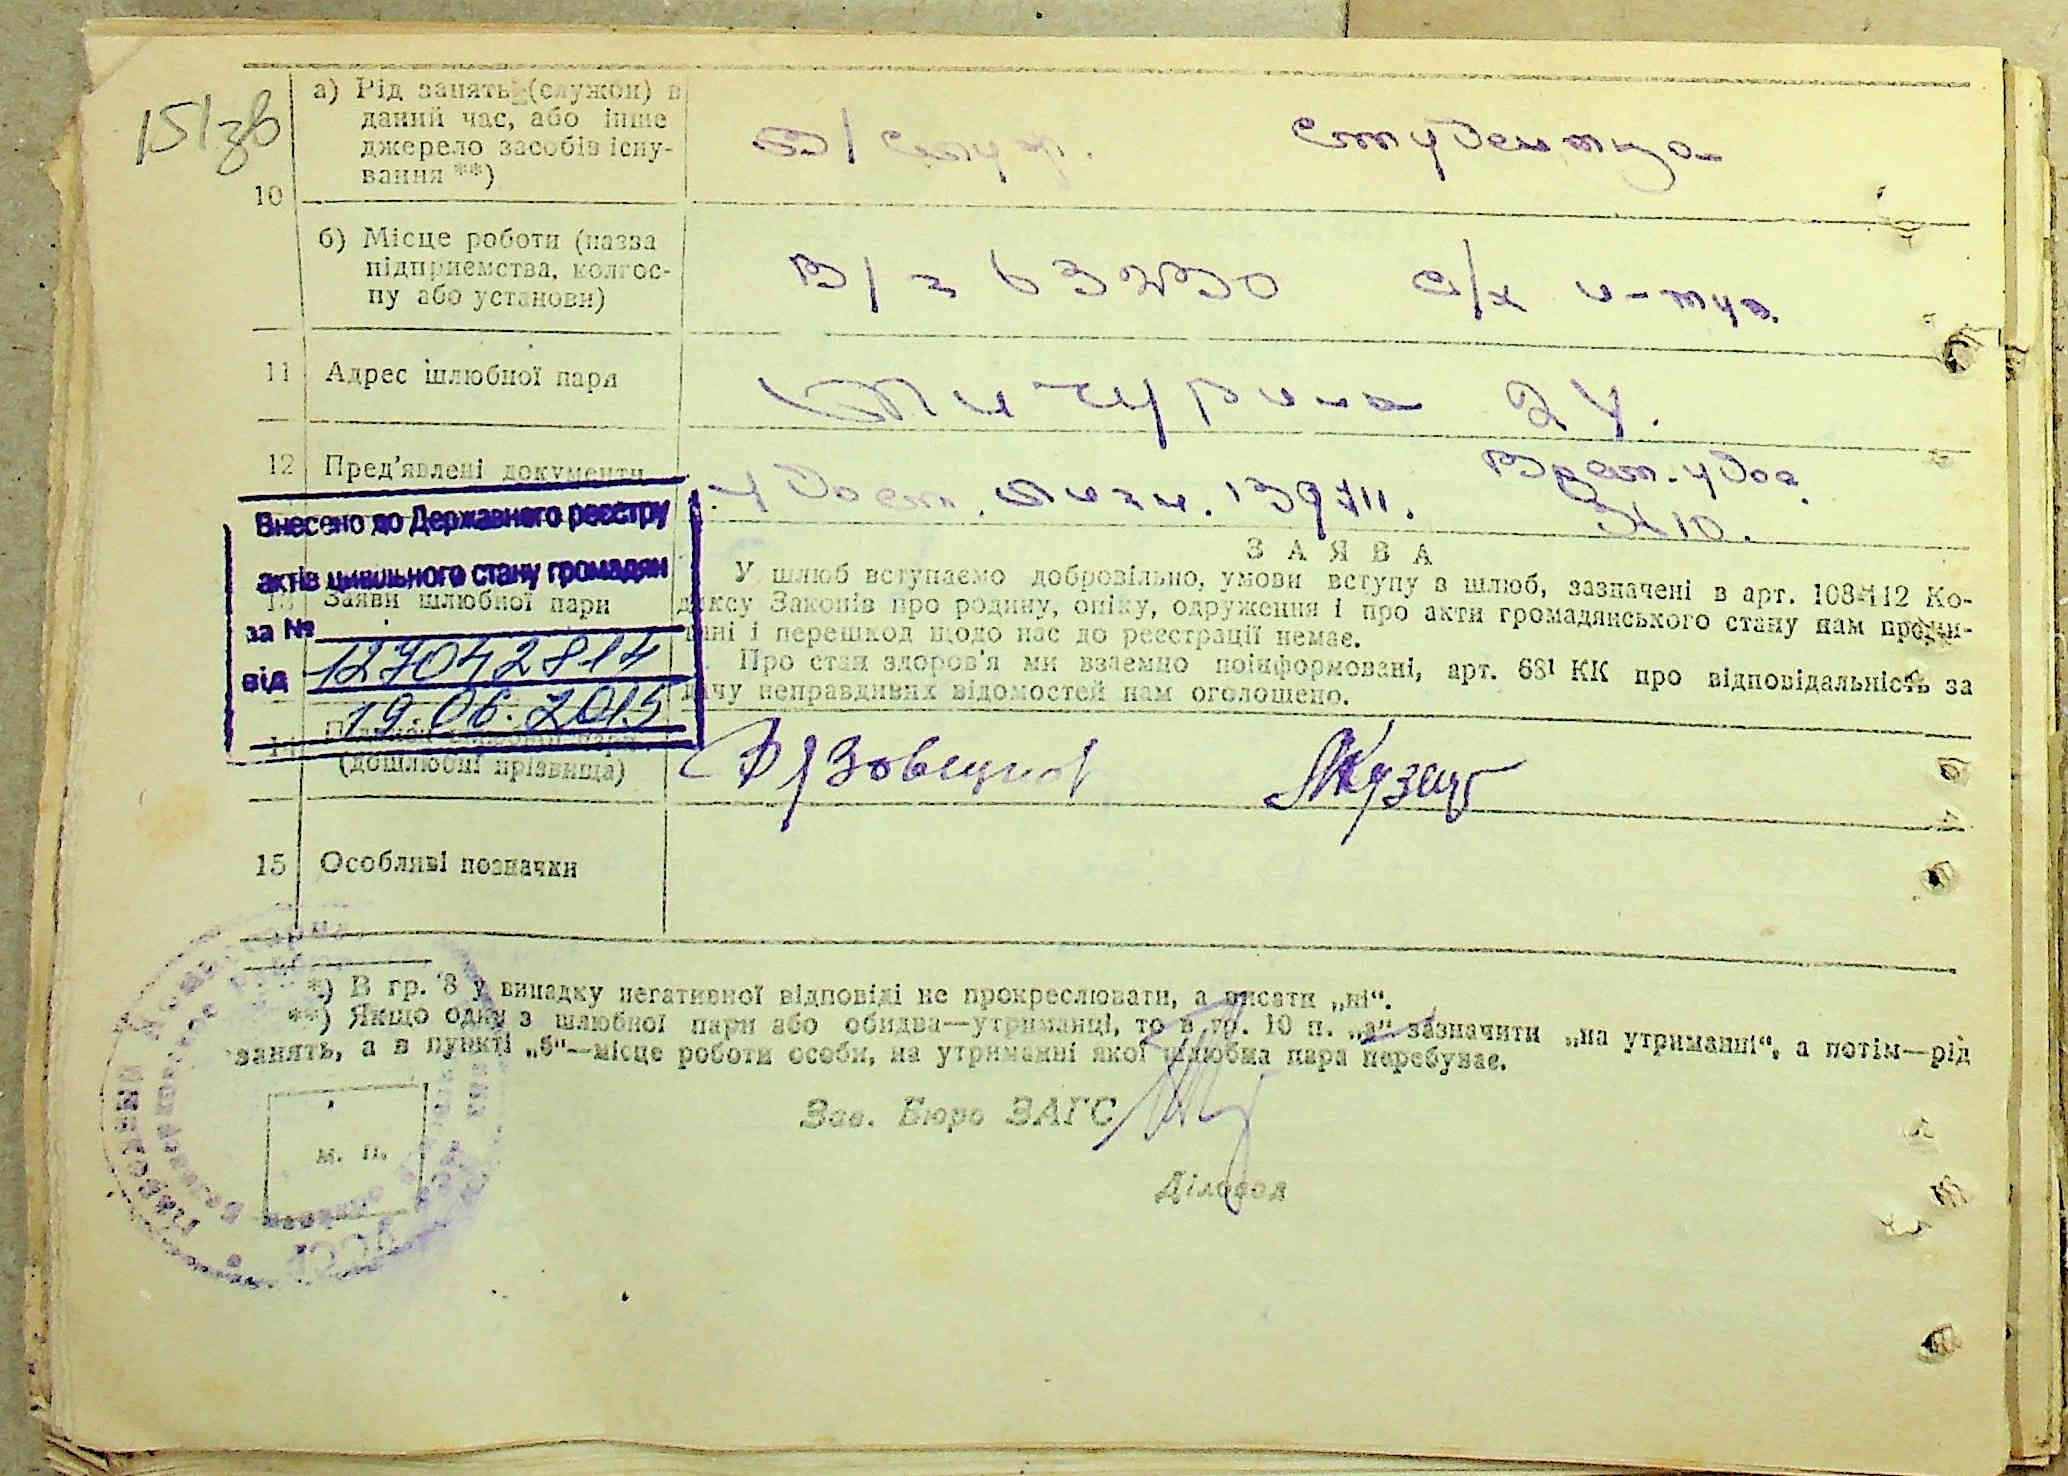 151зв
а) Рід занять (служби) в
даний час, або інше
джерело засобів існу-
вання **)
в/служ. студентка
10
б) Місце роботи (назва
підприємства, колгос-
пу або установи)
в/ч 63230 с/х и-тут.
11 Адрес шлюбної пари
Мичурина 24.
12 Пред'явлені документи
Удост. личн. Врем. удос.
Внесено до Державного реєстру
актів цивільного стану громадян
за № 127042814
від 19.06.2015
13 Заяви шлюбної пари
ЗАЯВА
У шлюб вступаємо добровільно, умови вступу в шлюб, зазначені в арт. 108-112 Ко-
дексу Законів про родину, опіку, одруження і про акти громадянського стану нам
і перешкод щодо нас до реєстрації немає.
Про стан здоров'я ми взаємно поінформовані, арт. 68¹ КК про відповідальність за
дачу неправдивих відомостей нам оголошено.
14 Підписи шлюбної пари
(дошлюбні прізвища)
15 Особливі позначки
*) В гр. 8 у випадку негативної відповіді не прокреслювати, а писати „ні“.
**) Якщо одну з шлюбної пари або обидва—утриманці, то в гр. 10 п. „а“ зазначити „на утриманні“, а потім—рід
занять, а в пункті „б“—місце роботи особи, на утриманні якої шлюбна пара перебуває.
Зав. Бюро ЗАГС
м. п.
Діловод